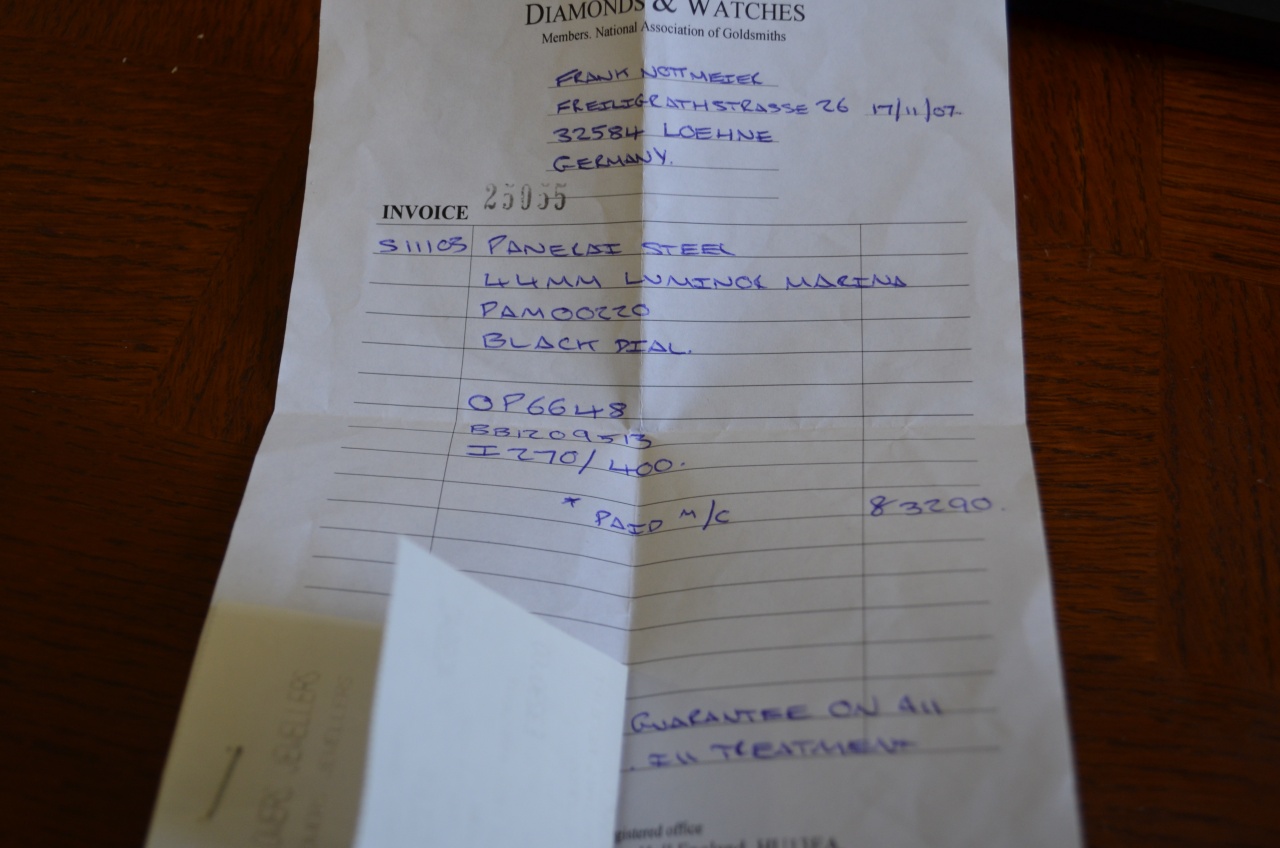 DIAMONDS & WATCHES
Members. National Association of Goldsmiths
FRANK NOTTMEIER
FREILIGRATHSTRASSE 26 17/11/07
32584 LOEHNE
GERMANY.
INVOICE 25055
S11103 PANERAI STEEL
44MM LUMINOR MARINA
PAM00220
BLACK DIAL.
OP6648
BB1209513
I270/400.
* PAID M/C 83290.
GUARANTEE ON All
Ill TREATMENT
JEWELLERS
JEWELLERS
gistered office
England,